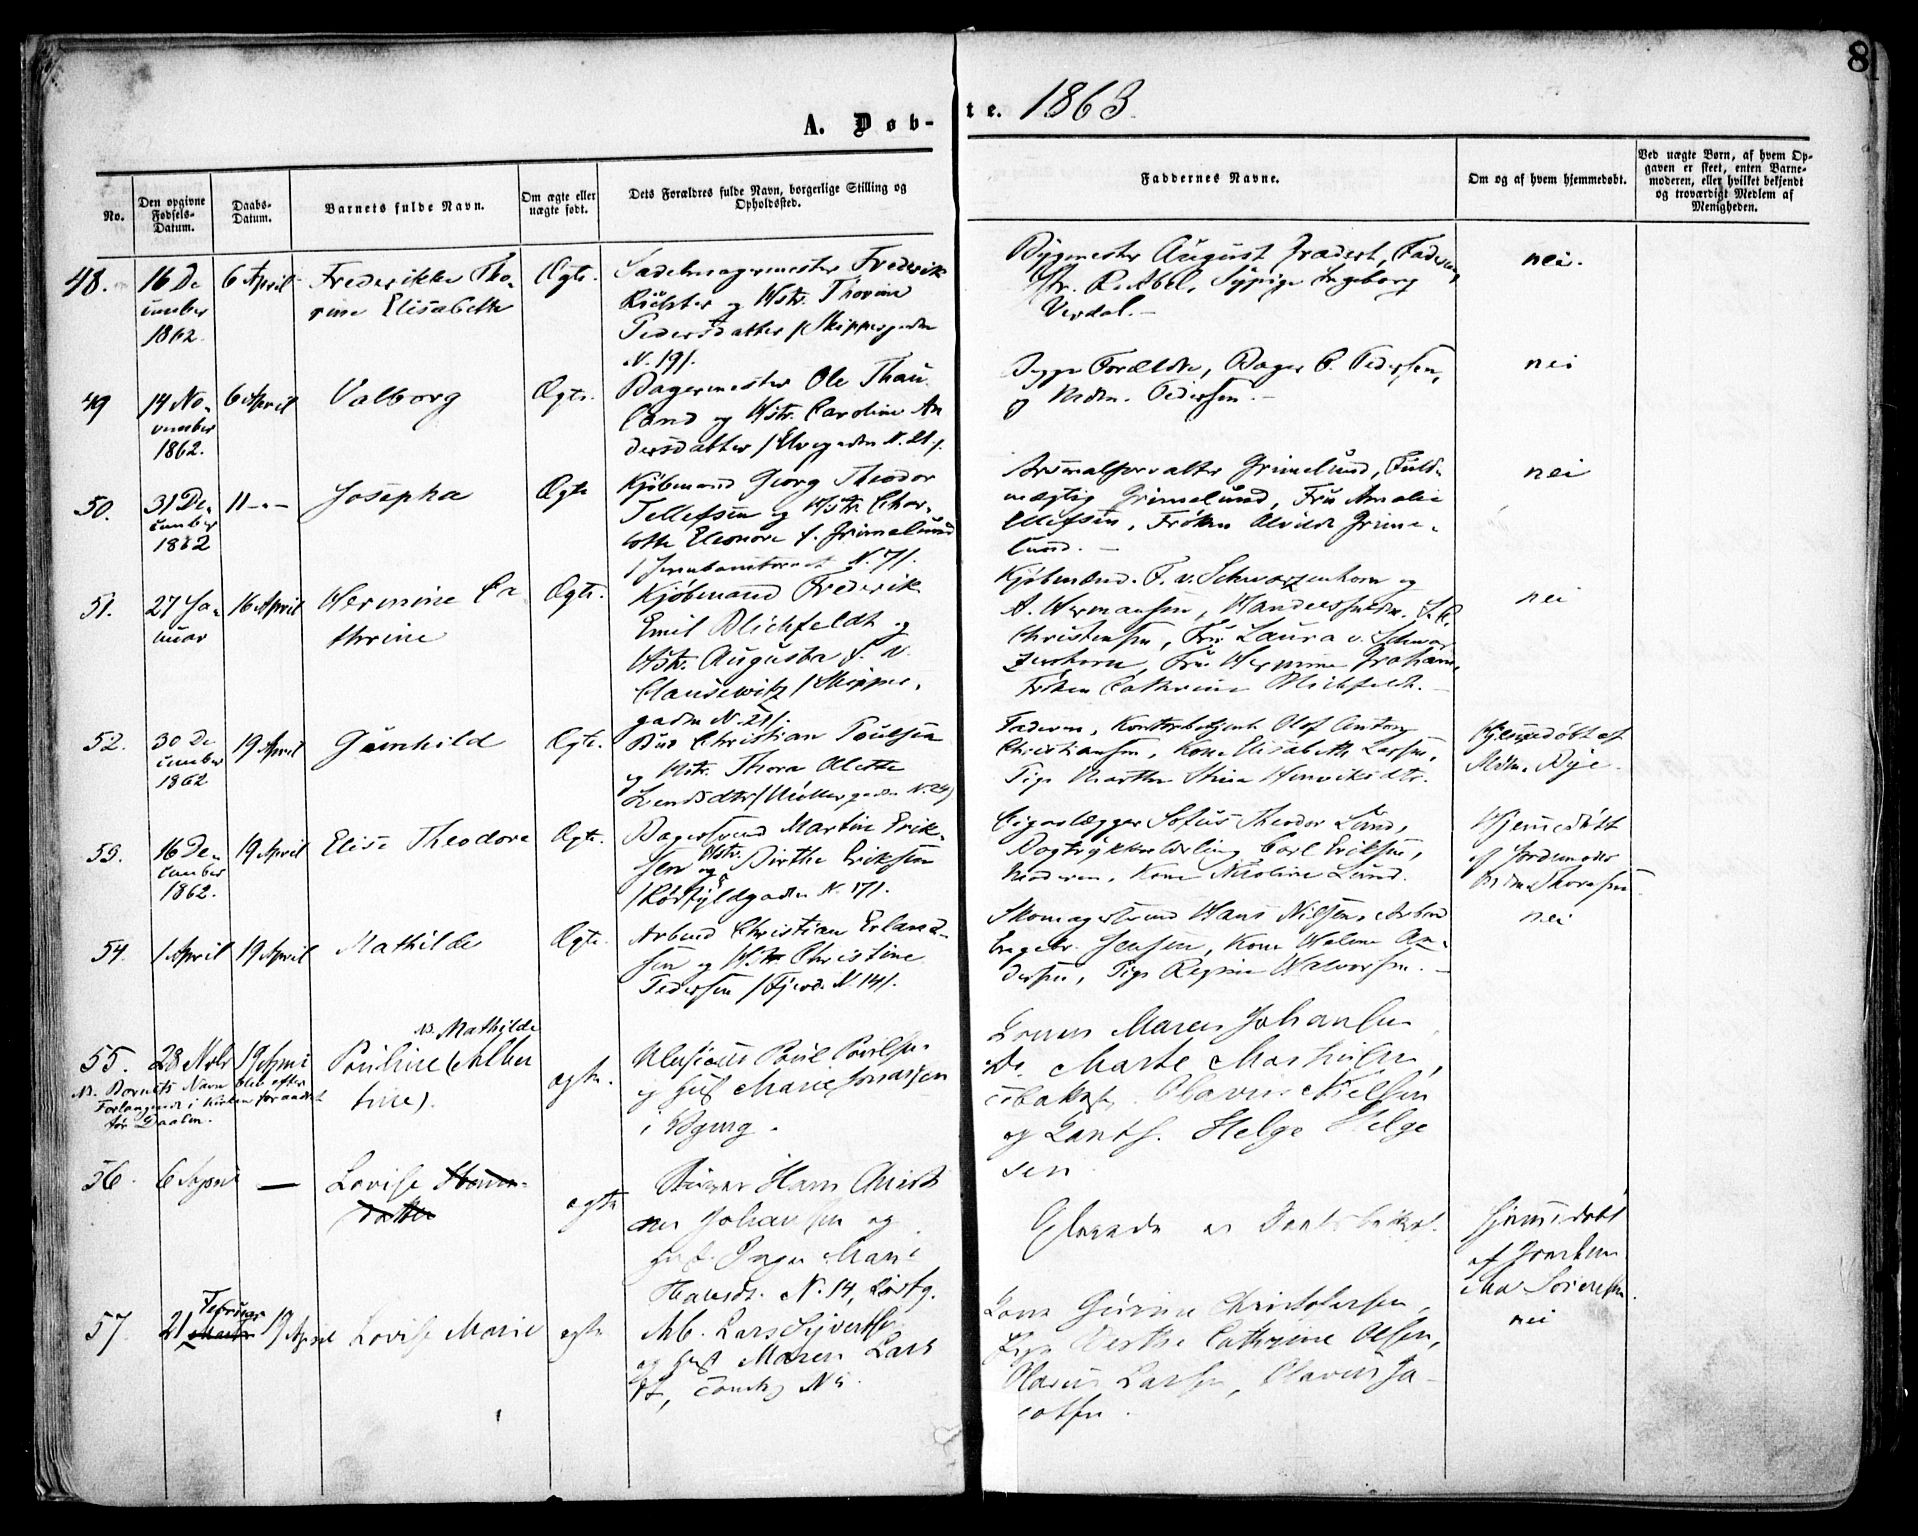 8
A. Døb-
te. 1863.
No.
Den opgivne Fødsels-Datum.
Daabs-Datum.
Barnets fulde Navn.
Om ægte eller uægte født.
Dets Forældres fulde Navn, borgerlige Stilling og Opholdssted.
Faddernes Navne.
Om og af hvem hjemmedøbt.
Ved uægte Børn, af hvem Op-
gaven er skeet, enten Barne-
moderen, eller hvilket bekjendt
og troværdigt Medlem af
Menigheden.
48.
16 De
cember
1862.
6 April
Frederikke Tho-
rine Elisabeth
Ægte.
Sadelmagermester Frederik
Richter og Hstr. Thorine
Pedersdatter /Skippergaden
N. 19/.
Bygmester August
R. Abel, Sypige Ingeborg
Verdal.
nei.
49
14 No-
vember
1862.
6 April
Valborg
Ægte.
Bagermester Ole Thau
land og Hstr. Caroline An
dersdatter /Elvegaden N. 21/.
Begge Forældre, Bager P. Pedersen,
og Mdm. Pedersen.
nei
50.
31 De-
cember
1862
11 -"-
Josepha
Ægte
Kjøbmand Georg Theodor
Tellefsen og Hstr. Char-
lotte Eleonore f. Grimelund
N. 7/.
Grimelund, Fuld-
mægtig Grimelund, Fru Amalie
Ellefsen, Frøken Alvilde Grime-
lund.
nei
51.
27 Ja-
nuar
16 April
Hermine Ca-
thrine
Ægte.
Kjøbmand Frederik
Emil Blichfeldt og
Hstr. Augusta f. v.
Clausewitz /Skipper-
gaden N. 21/.
Kjøbmænd. F. v. Schwarzenhorn og
A. Hermansen,
Christensen, Fru Laura v. Schwar
zenhorn, Fru Hermine
Frøken Cathrine Blichfeldt.
nei
52.
30 De
cember
1862
19 April
Gunhild
Ægte.
Bud Christian Poulsen
og Hstr. Thora Olette
/Møllergaden N. 24/
Faderen, Olof Anton
Christiansen, Kone Elisabeth Larsen,
Pige Marthe Stina Henriksdtr.
Hjemmedøbt af
Mdm. Rye.
53.
16 De-
cember
1862.
19 April
Elise Theodora
Ægte.
Bagersvend Martin Erik-
sen og Hstr. Birthe Eriksen
/Rødfyldgaden N. 17/.
Cigarlægger Sofus Theodor Lund,
Bogtrykkerlærling Carl Eriksen,
Moderen, Kone Nicoline Lund.
Hjemmedøbt
af Jordemoder
Thoresen.
54.
1 April
19 April
Mathilde
Ægte.
Arbmd Christian Erland-
sen og Hstr. Christine
Pedersen /Fjerd. N. 14/.
Skomagersvend Hans Nilsen, Arbmd
Engebr. Jensen, Kone Helene An-
dersen, Pige Regine Halvorsen.
nei
55.
28 Novbr
19 April
NB. Mathilde
Pauline (Alber
tine).
NB. Barnets Navn blev efter
Forlangende i Kirken forandret
før Daaben.
ægte.
Poul Poulsen
og Hust Marie Jonassen
Konen Maren Johansen
Do. Marte
Olavus Nielsen
og Helge Helge
sen
56.
6 April
—
Lovise Hans-
datter
ægte
Hans Christi
an Johansen og
Hust. Inger Marie
Hansd. N. 14,
Hjemmedøbt
af Jordem.
Sørensen.
57.
Februar
21 Marts
19 April
Lovise Marie
ægte
Arb. Lars Syvertsen
og Hust Maren Lars
dt,
Kone Christophersen,
Pige Berthe Cathrine Olsen,
Olavus Larsen, Olavus Ja-
cobsen.
nei